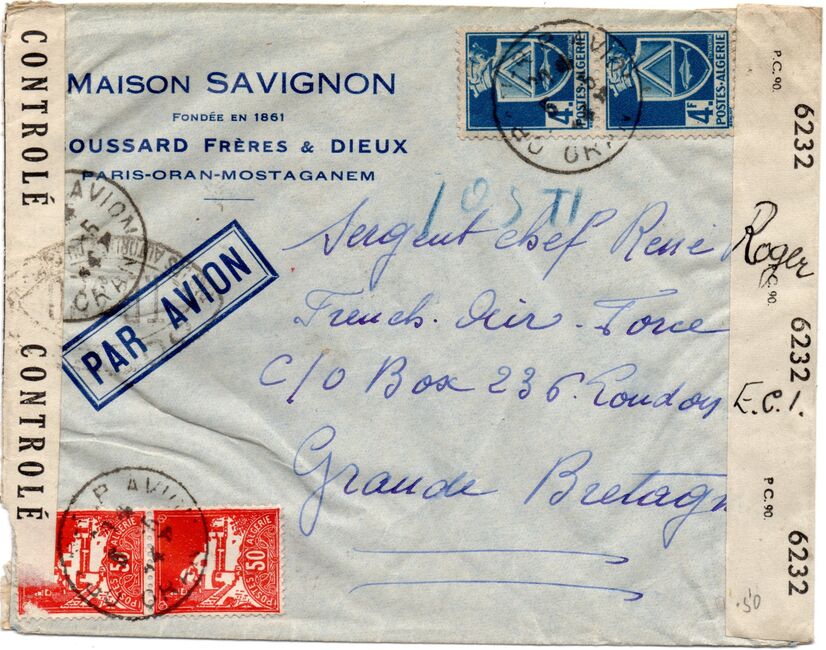 CONTROLÉ
CONTROLÉ
MAISON SAVIGNON
FONDÉE EN 1861
OUSSARD FRÈRES & DIEUX
PARIS-ORAN-MOSTAGANEM
4F POSTES-ALGÉRIE
4F POSTES-ALGÉRIE
PAR AVION
ORAN
AVION
ORAN
PAR AVION
Sergent chef René Roger
French. Air. Force
C/O Box 236. London E.C.1.
Grande Bretagn
P.C. 90.
6232
P.C. 90.
6232
P.C. 90.
6232
P. AVION
50 POSTES ALGERIE
50 POSTES ALGERIE
.50